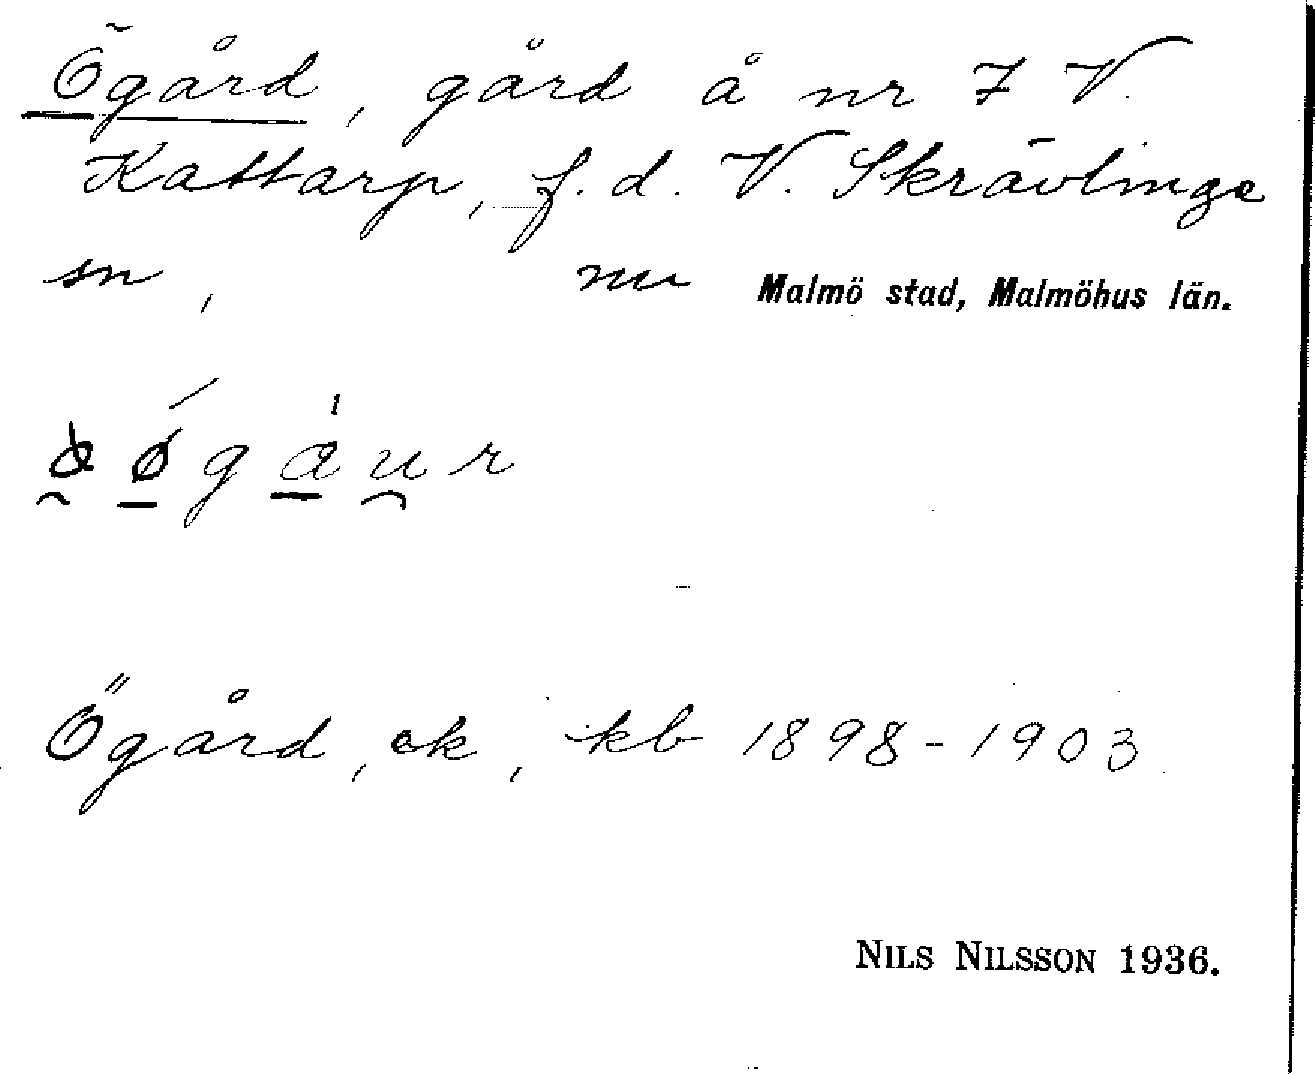 Ögård, gård å nr 7 V.
Kattarp, f.d. V. Skrävlinge
sn, nu Malmö stad, Malmöhus län.
Ögård, ek, kb 1898-1903
NILS NILSSON 1936.